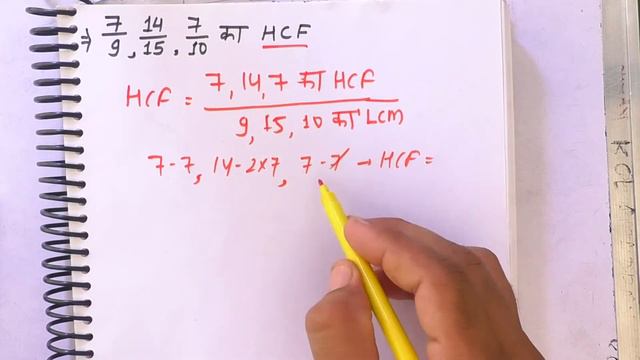 ⇒ 7/9, 14/15, 7/10 का HCF
HCF = 7, 14, 7 का HCF / 9, 15, 10 का LCM
7-7, 14-2x7, 7-7 → HCF =